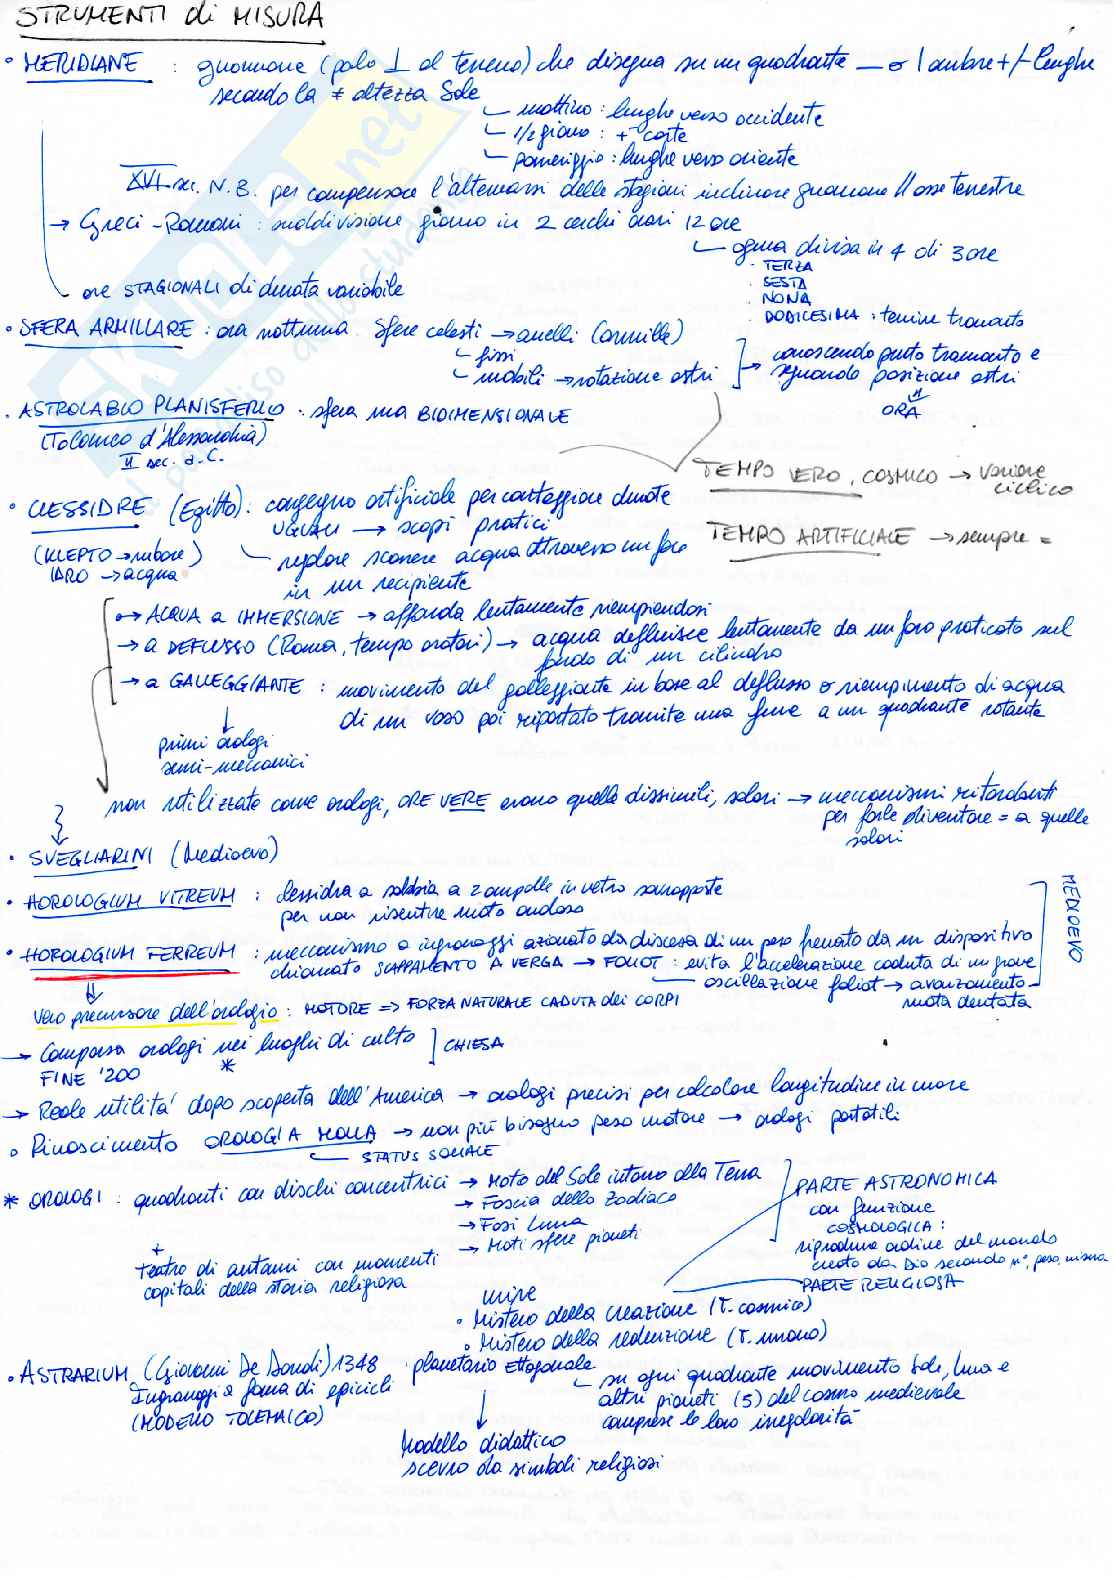 STRUMENTI di MISURA
• MERIDIANE : gnomone (palo ⊥ al terreno) che disegna su un quadrante — o 1 ombre +/- lunghe
secondo la ≠ altezza Sole
mattino : lunghe verso occidente
1/2 giorno : + corte
pomeriggio : lunghe verso oriente
XVI sec. N.B. per compensare l'alternarsi delle stagioni inclinare gnomone // asse terrestre
→ Greci-Romani : suddivisione giorno in 2 cerchi orari 12 ore
ognuna divisa in 4 di 3 ore
. TERZA
. SESTA
. NONA
. DODICESIMA : termine tramonto
ore STAGIONALI di durata variabile
• SFERA ARMILLARE : ora notturna. Sfere celesti → anelli (armille)
fissi
mobili → rotazione astri
→ conoscendo punto tramonto e
sguardo posizione astri
ORA
. ASTROLABIO PLANISFERICO : sfera ma BIDIMENSIONALE
(Tolomeo d'Alessandria)
II sec. a.C.
TEMPO VERO, COSMICO → variare
ciclico
TEMPO ARTIFICIALE → sempre =
• CLESSIDRE (Egitto) : congegno artificiale per conteggiare durate
UGUALI → scopi pratici
(KLEPTO → rubare)
IDRO → acqua
regolare scorrere acqua attraverso un foro
in un recipiente
→ ACQUA a IMMERSIONE → affonda lentamente riempiendosi
→ a DEFLUSSO (Roma, tempo oratori) → acqua defluisce lentamente da un foro praticato sul
fondo di un cilindro
→ a GALLEGGIANTE : movimento del galleggiante in base al deflusso o riempimento di acqua
di un vaso poi riportato tramite una fune a un quadrante rotante
primi orologi
semi-meccanici
non utilizzate come orologi, ORE VERE erano quelle dissimili, solari → meccanismi ritardanti
per farle diventare = a quelle
solari
• SVEGLIARINI (Medioevo)
• HOROLOGIUM VITREUM : clessidra a sabbia a 2 ampolle in vetro sovrapposte
per non risentire moto ondoso
• HOROLOGIUM FERREUM : meccanismo a ingranaggi azionato da discesa di un peso frenato da un dispositivo
chiamato SCAPPAMENTO A VERGA → FOLIOT : evita l'accelerazione caduta di un grave
oscillazione foliot → avanzamento
ruota dentata
MEDIOEVO
vero precursore dell'orologio : MOTORE => FORZA NATURALE CADUTA dei CORPI
→ Comparsa orologi nei luoghi di culto ] CHIESA
FINE '200 *
→ Reale utilità dopo scoperta dell'America → orologi precisi per calcolare longitudine in mare
• Rinascimento OROLOGI A MOLLA → non più bisogno peso motore → orologi portatili
STATUS SOCIALE
* OROLOGI : quadranti con dischi concentrici → Moto del Sole intorno alla Terra
→ Fascia dello Zodiaco
→ Fasi Luna
→ Moti sfere pianeti
PARTE ASTRONOMICA
con funzione
COSMOLOGICA :
riprodurre ordine del mondo
creato da Dio secondo n°, peso, misura
PARTE RELIGIOSA
+
Teatro di automi con momenti
capitali della storia religiosa
unire
• Mistero della creazione (T. cosmico)
• Mistero della redenzione (T. umano)
• ASTRARIUM (Giovanni De Dondi) 1348 planetario ettagonale
Ingranaggi a forma di epicicli
(MODELLO TOLEMAICO)
su ogni quadrante movimento Sole, Luna e
altri pianeti (5) del cosmo medievale
comprese le loro irregolarità
Modello didattico
scevro da simboli religiosi